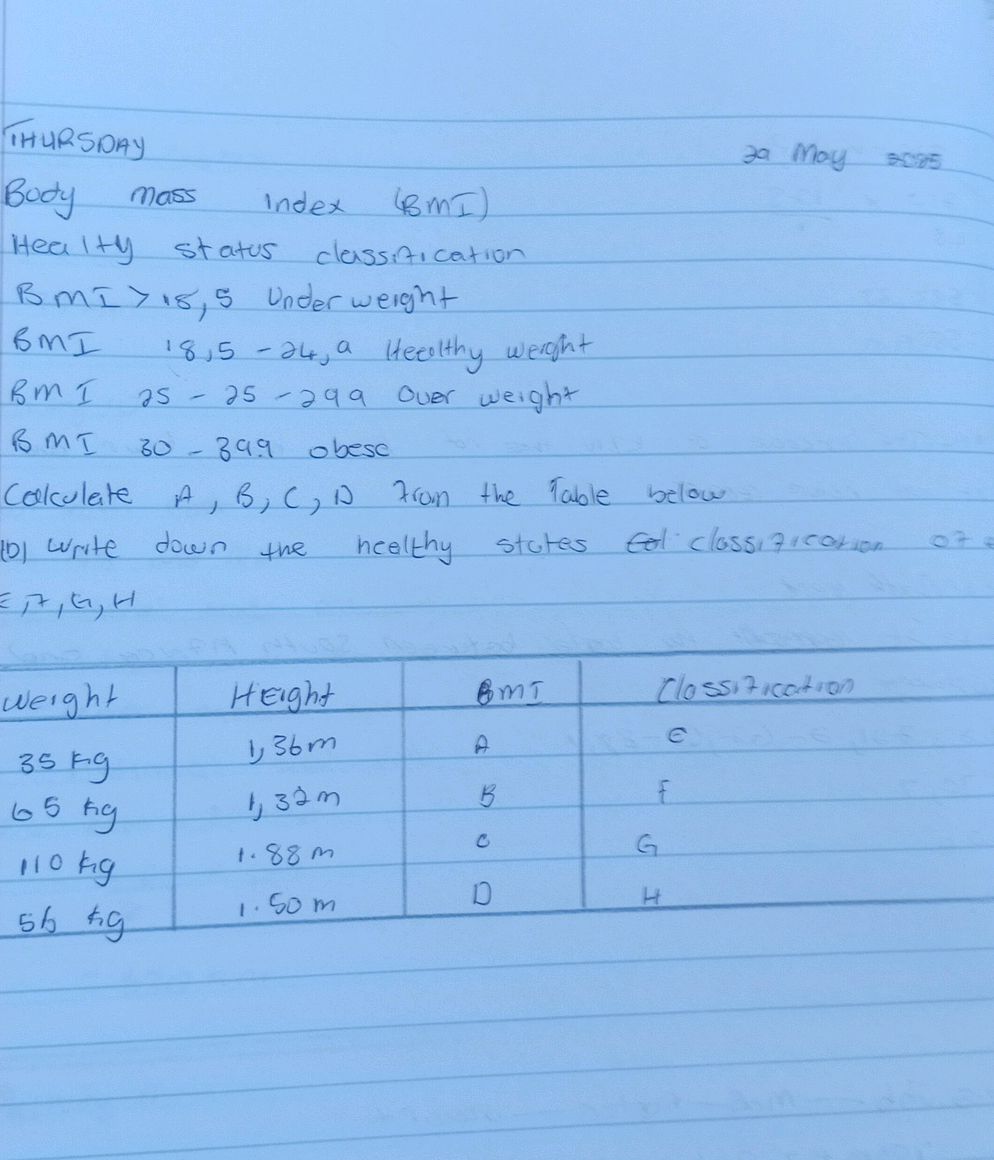 THURSDAY 29 May 2025
Body mass index (BMI)
Healty status classification
BMI > 18,5 Underweight
BMI 18,5 - 24,9 Heealthy weight
BMI 25 - 25 - 299 Over weight
BMI 30 - 399 obese
Calculate A, B, C, D from the Table below
(D) write down the heelthy states classification of
E, F, G, H
Weight HEight BMI Classification
35 kg 1,36m A E
65 kg 1,32m B F
110 kg 1.88m C G
56 kg 1.50 m D H